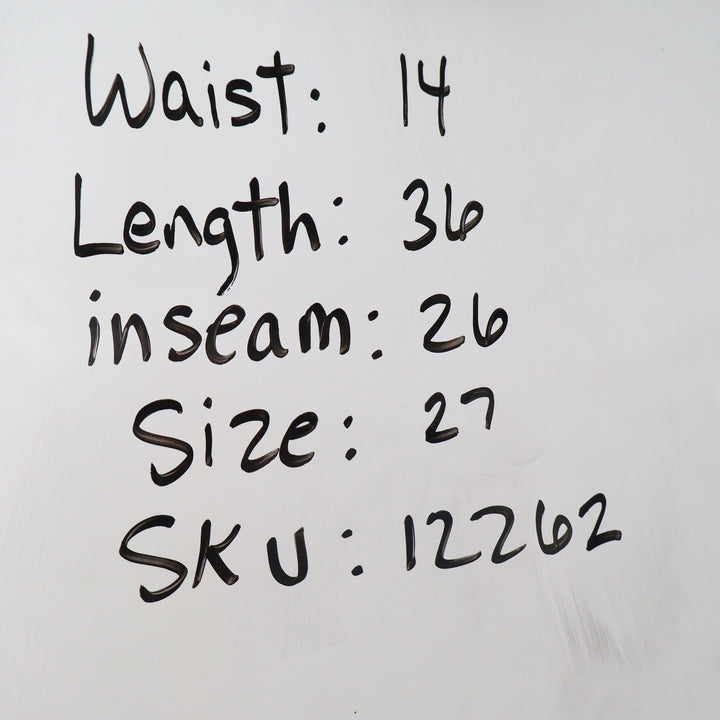 Waist: 14
Length: 36
inseam: 26
Size: 27
SKU: 12262